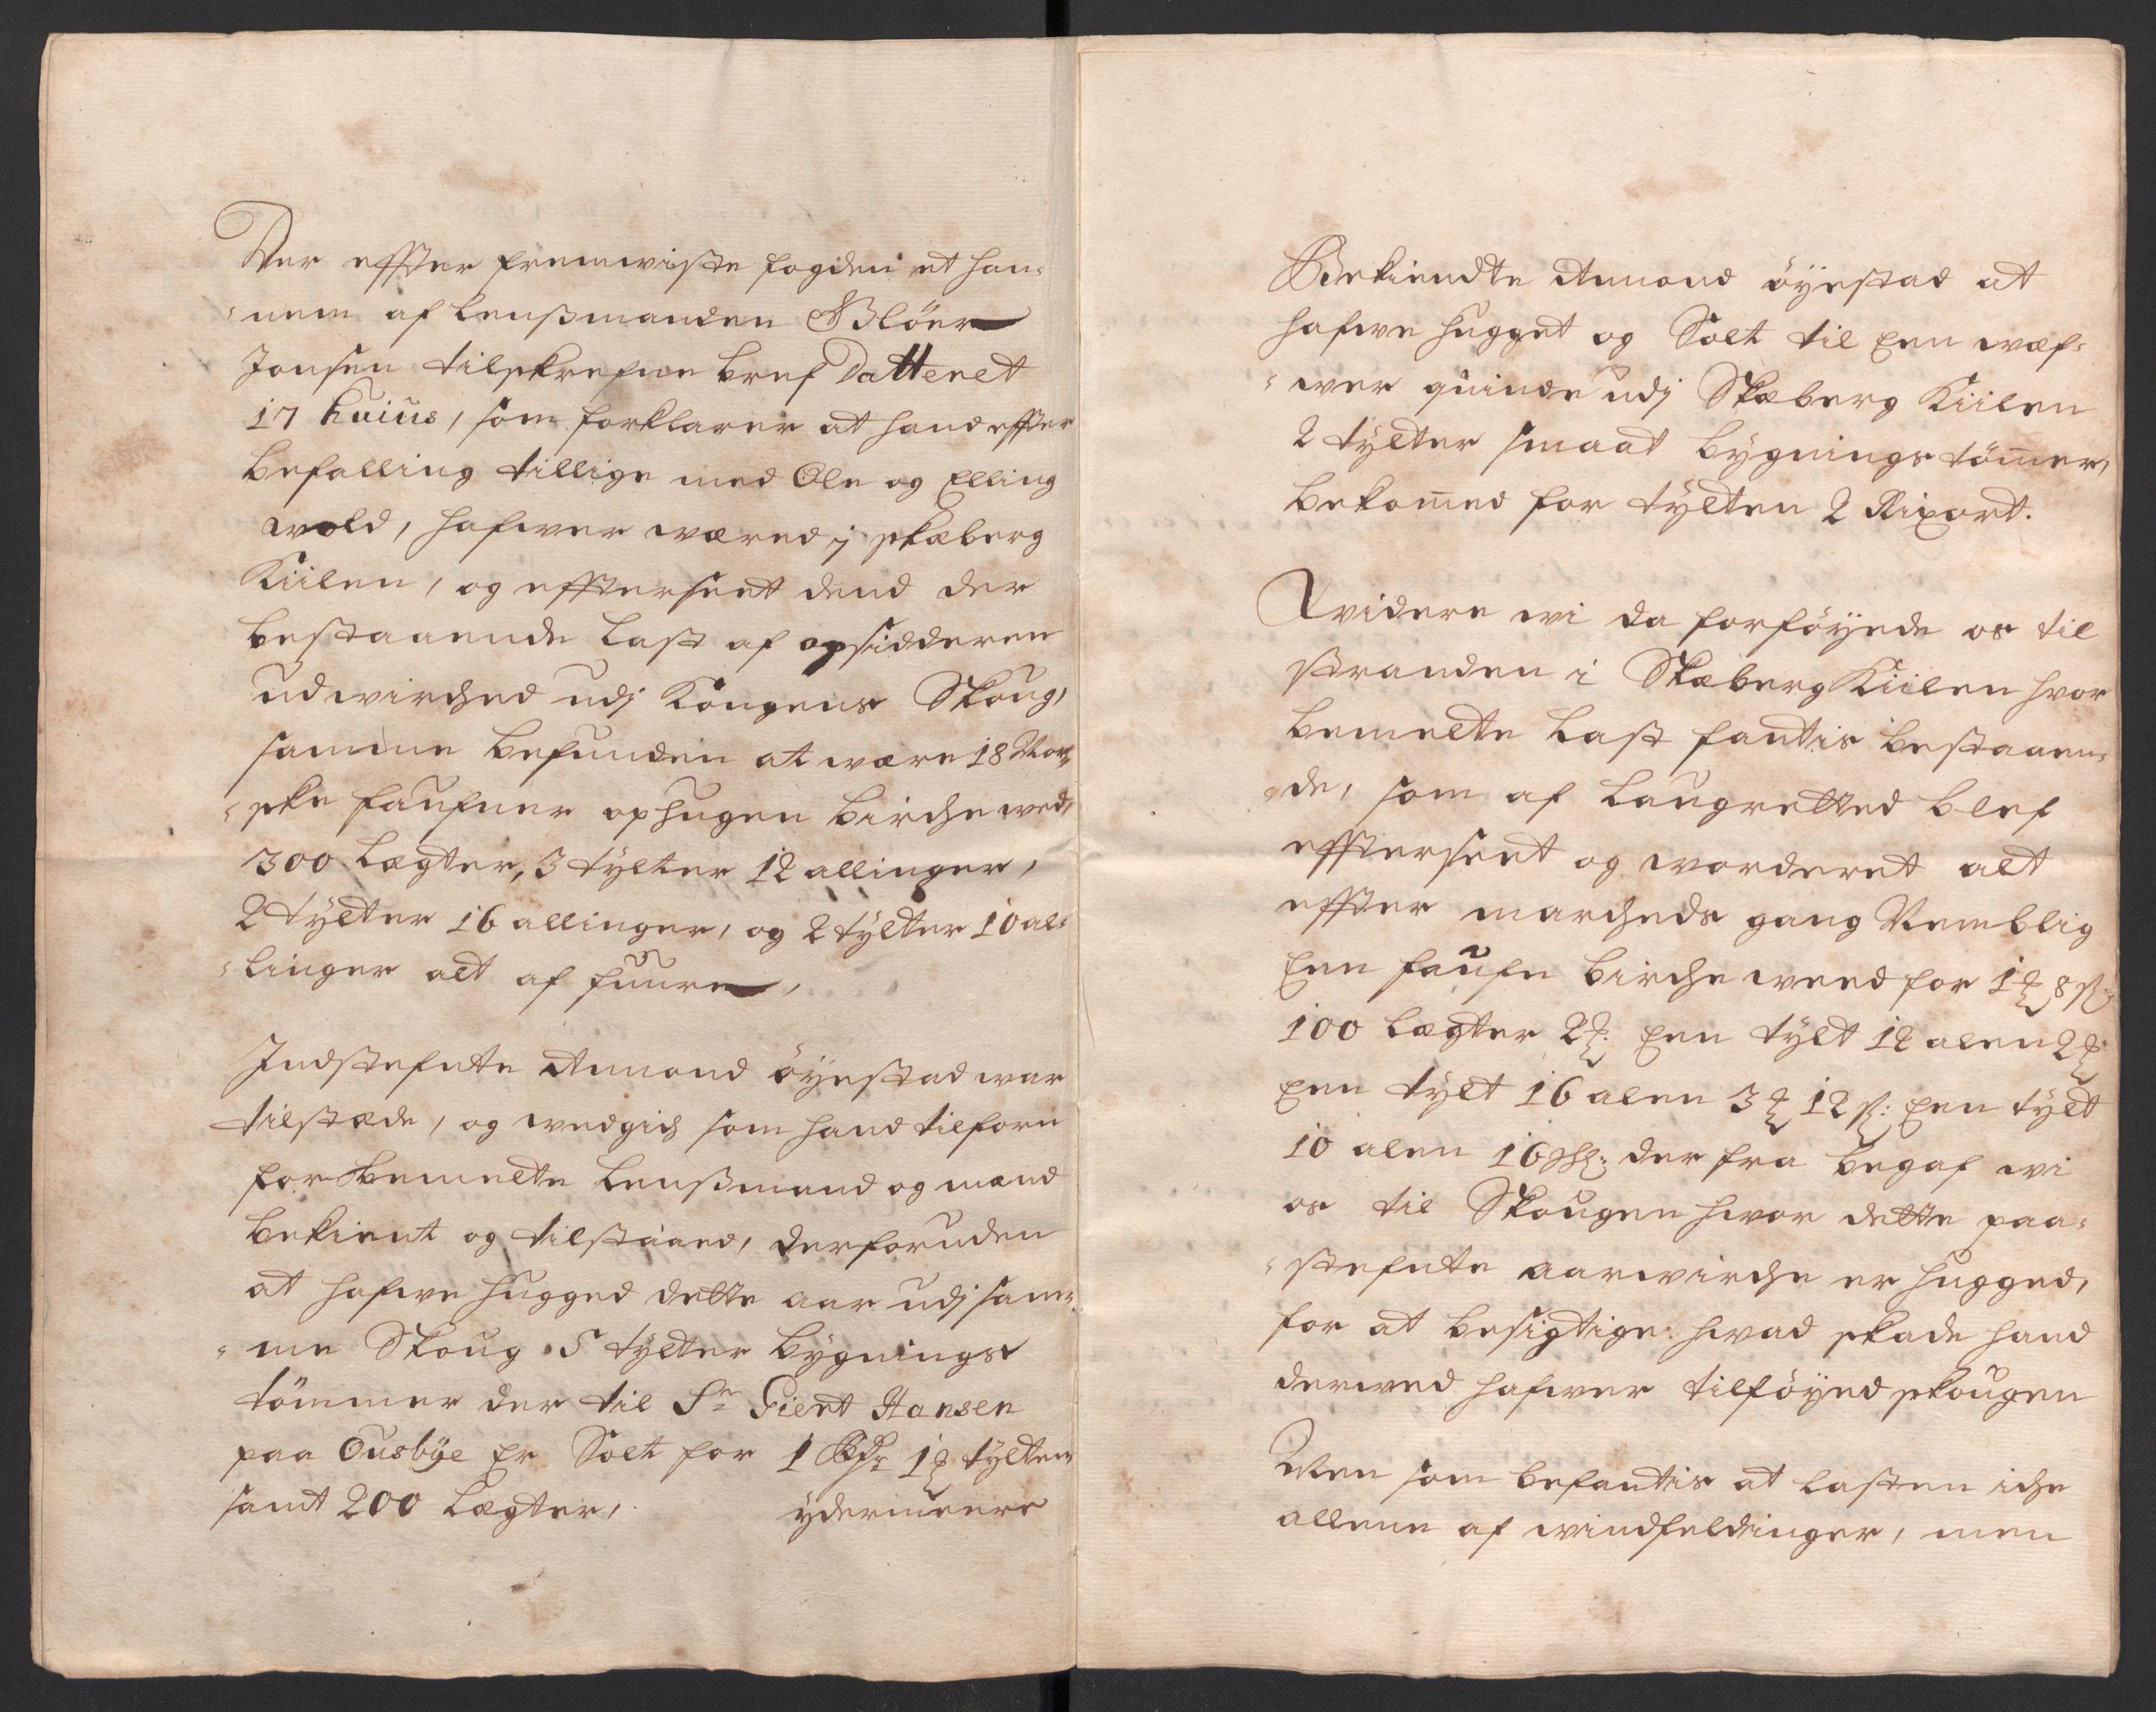 Der effter fremwiste fogden et han¬
nem af Lenßmanden Glöer
Jonsen tilskrefne bref Datteret
17 huius, som forklarer at hand effter
befalling tillige med Ole og Elling
wold, hafwer wæred j skæberg
Kiilen, og efftersеet dend der
bestaaende Last af opsidderen
udwirched udj Kongens Skoug,
samme befunden at wære 18 Nor¬
ske faufner ophugen birche wed,
300 Lægter, 3 tylter 12 allinger,
2 tylter 16 allinger, og 2 tylter 10 al¬
linger alt af fuure,
Indstefnte Amond öyestad war
tilstæde, og wedgich som hand tilforn
for bemelte Lenßmand og mænd
bekient og tilstaaed, derforuden
at hafwe hugged dette aar udj sam¬
me Skoug 5 tylter bygnings
tömmer der til Sr Giert Hansen
paa Ousbye er Solt for 1 Rdr 1 tylten
samt 200 Lægter, ydermeere
Bekiendte Amond öyestad at
hafwe hugget og Solt til Een wæf¬
wer quinde udj Skæberg Kiilen
2 tylter smaat bygnings tömer,
bekomed for tylten 2 Rixort.
Widere wi da forföyede os til
stranden i Skæberg Kiilen hvor
bemelte Last fantis bestaaen¬
de, som af Laugretted blef
effterseet og worderet alt
effter marcheds gang Nemblig
Een faufn birche weed for 1 8 ß
100 Lægter 2 Een tylt 12 alen 2
Een tylt 16 alen 3 12 ß: Een tylt
10 alen 16 ß: der fra begaf wi
os til Skougen hwor dette paa¬
stefnte aarwirche er hugged,
for at besigtige hwad skade hand
derwed hafwer tilföyed skougen
Men som befantis at Lasten iche
allene af windfeldinger, men